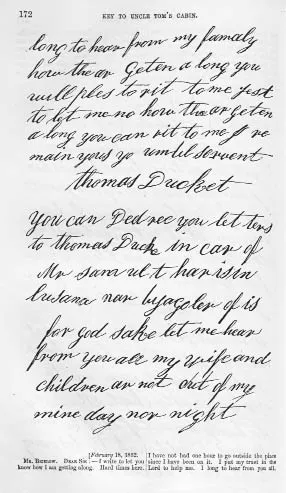 172 KEY TO UNCLE TOM'S CABIN.
long to hear from my famaly
how the ar Geten a long you
will ples to rit to me jest
to let me no how the ar geten
a long you can rit to me I re
main yours yo umbil Servent
Thomas Ducket
You can Ded rec you let ters
to thomas Ducket in car of
Mr samul t harisin
luisana nar byagoler
for god sake let me hear
from you all my wife and
children ar not out of my
mine day nor night
[February 18, 1852.
MR. BIGELOW. DEAR SIR:—I write to let you
know how I am getting along. Hard times here.
I have not had one hour to go outside the place
since I have been on it. I put my trust in the
Lord to help me. I long to hear from you all.